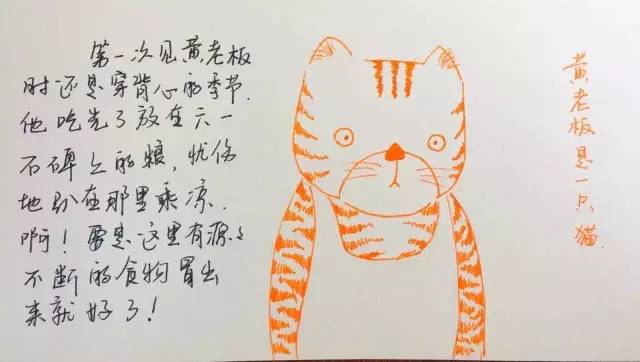 第一次见黄老板
时还是穿背心的季节.
他吃完了放在六一
石碑上的粮，忧伤
地趴在那里乘凉.
啊！要是这里有源源
不断的食物冒出
来就好了！
黄老板是一只猫.